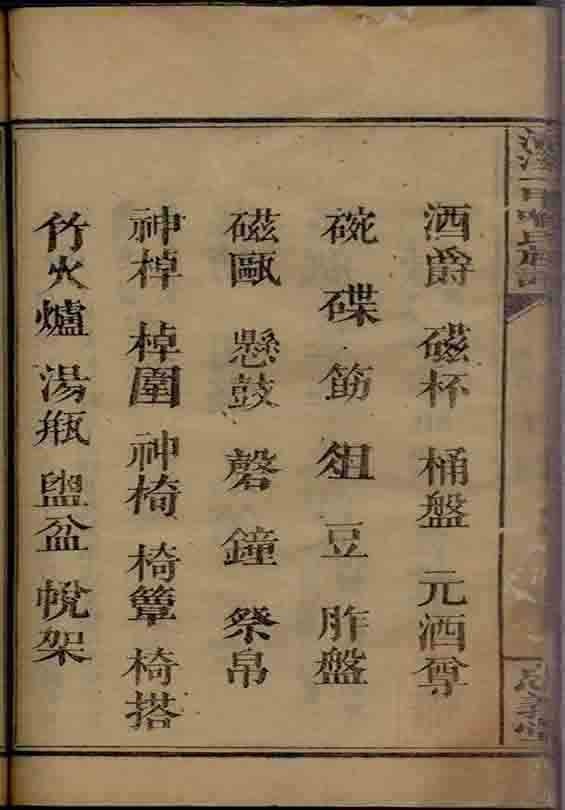 酒爵 磁杯 桶盤 元酒尊
碗 碟 筯 俎 豆 胙盤
磁甌 懸鼓 磬 鐘 祭帛
神棹 棹圍 神椅 椅簟 椅搭
竹火爐 湯瓶 盥盆 帨架